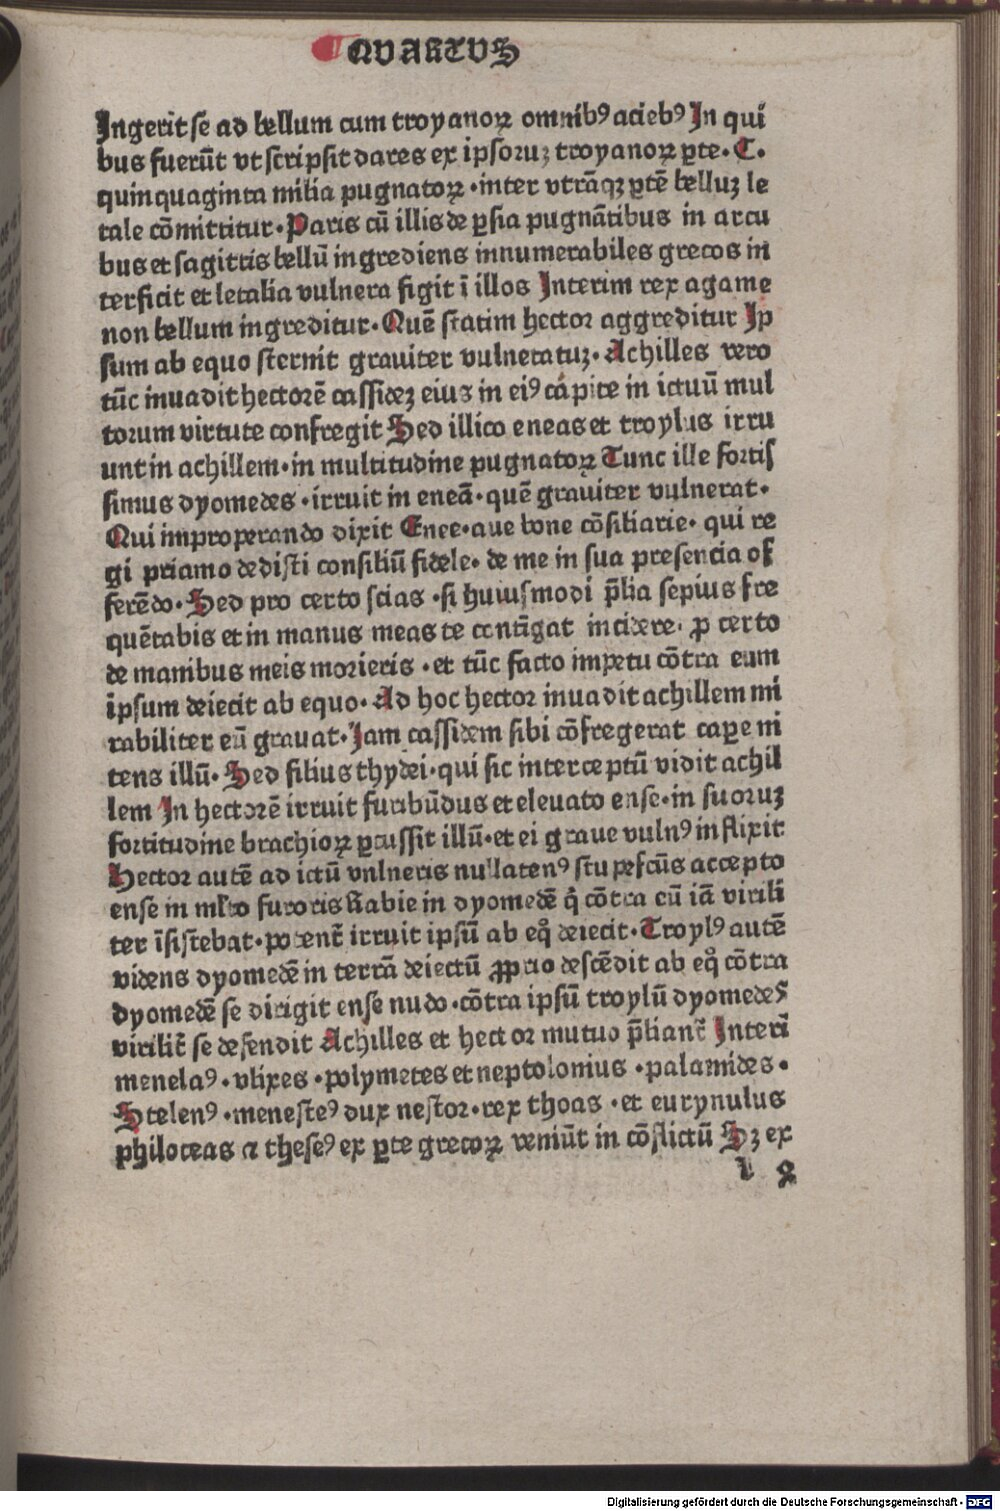 QVARTVS
Ingerit se ad bellum cum troyanoꝝ omnibꝰ aciebꝰ In qui
bus fuerūt vt scripsit dares ex ipsoruꝫ troyanoꝝ ꝑte · C ·
quinquaginta milia pugnatoꝝ · inter vtrāqꝫ ꝑtē belluꝫ le
tale cōmittitur · Paris cū illis de ꝑsia pugnātibus in arcu
bus et sagittis bellū ingrediens innumerabiles grecos in
terficit et letalia vulnera figit ī illos Interim rex agame
non bellum ingreditur · Quē statim hector aggreditur Ip
sum ab equo sternit grauiter vulneratuꝫ · Achilles vero
tūc inuadit hectorē cassideꝫ eius in eiꝰ capite in ictuū mul
torum virtute confregit Sed illico eneas et troylus irru
unt in achillem · in multitudine pugnatoꝝ Tunc ille fortis
simus dyomedes · irruit in eneā · quē grauiter vulnerat ·
Qui improperando dixit Enee · aue bone cōsiliarie · qui re
gi priamo dedisti consiliū fidele · de me in sua presencia of
ferēdo · Sed pro certo scias · si huiusmodi p̄lia sepius fre
quētabis et in manus meas te contīgat incidere · ꝓ certo
de manibus meis morieris · et tūc facto impetu cōtra eum
ipsum deiecit ab equo · Ad hoc hector inuadit achillem mi
rabiliter eū grauat · Jam cassidem sibi cōfregerat capere ni
tens illū · Sed filius thydei · qui sic interceptū vidit achil
lem In hectorē irruit furibūdus et eleuato ense · in suoruꝫ
fortitudine brachioꝝ ꝑcussit illū · et ei graue vulnꝰ inflixit
Hector autē ad ictū vulneris nullatenꝰ stupefcūs accepto
ense in mlto furoris Rabie in dyomedē q̇ cōtra eū iā virili
ter īsistebat · potent̄ irruit ipsū ab eq̊ deiecit · Troylꝰ autē
videns dyomedē in terrā deiectū ꝓprio descēdit ab eq̊ cōtra
dyomedē se dirigit ense nudo · cōtra ipsū troylū dyomedes
virilit̄ se defendit Achilles et hector mutuo p̄liant̄ Interī
menelaꝰ · vlixes · polymetes et neptolonius · palamides ·
Stelenꝰ · menesteꝰ dux nestor · rex thoas · et eurynulus
philoceas ⁊ theseꝰ ex ꝑte grecoꝝ veniūt in cōflictū Sꝫ ex
l 2
Digitalisierung gefördert durch die Deutsche Forschungsgemeinschaft - DFG